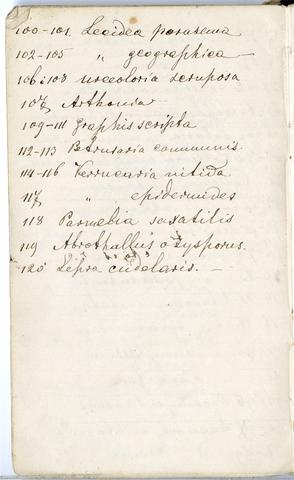 100-101. Lecidea parasema
102-105 „ geographica —
106-108 urceolaria scruposa
107 Arthonia
109-111 graphis scripta
112-113 Pertusaria communis.
114-116 Verrucaria nitida
117 „ epidermides
118 Parmelia saxatilis
119 Abrothallus oxysporus.
120 Lepra cudelaris. —